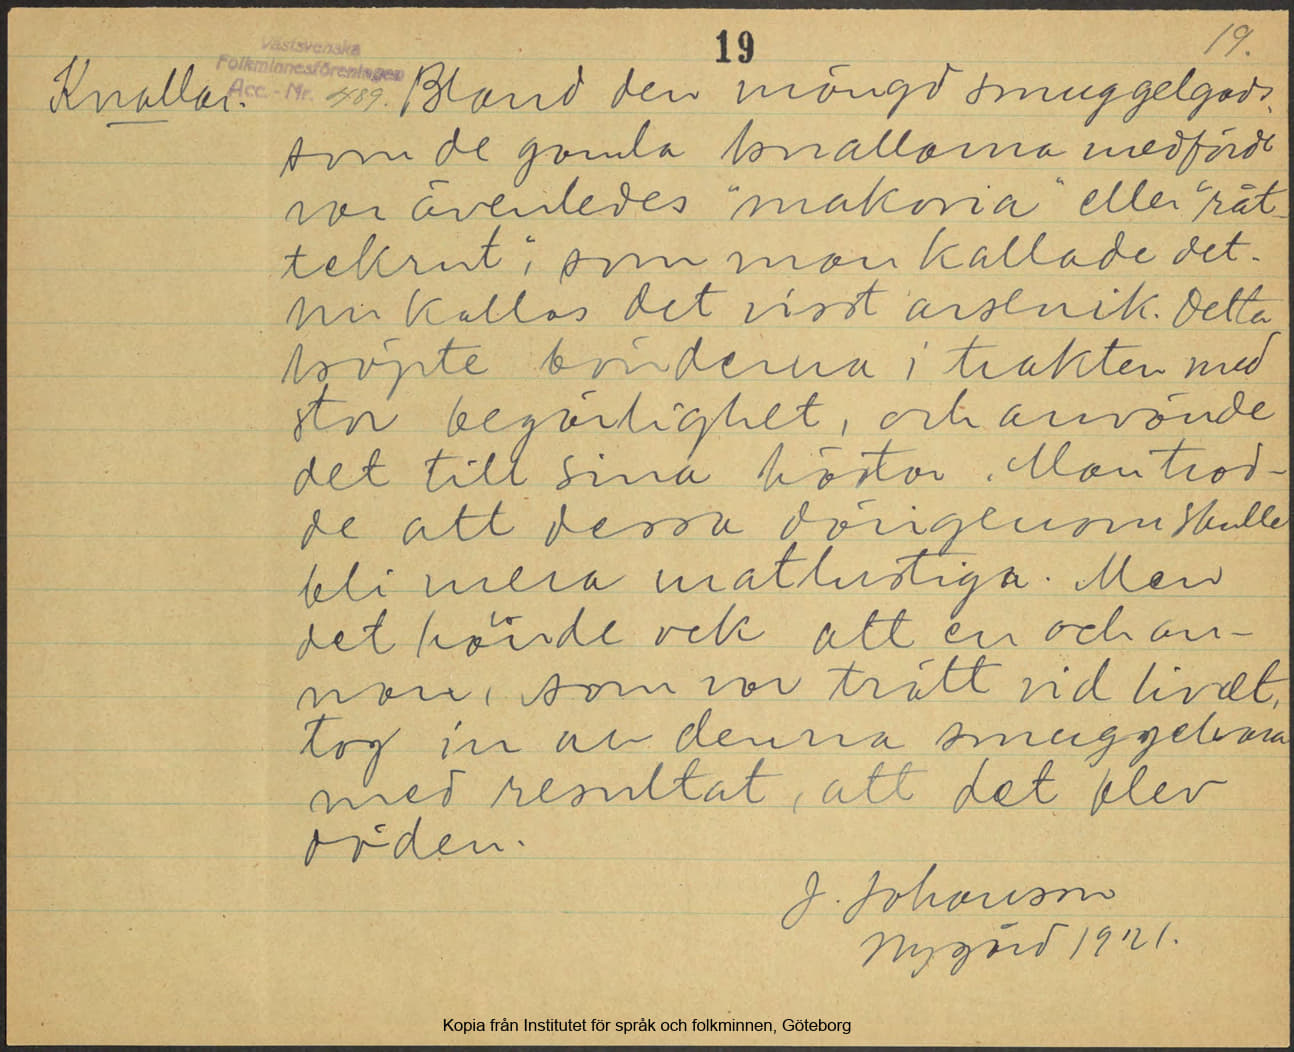 19
19.
Västsvenska
Folkminnesföreningen
Acc.-Nr. 489.
Knallar. Bland den mängd smuggelgods,
som de gamla knallarna medförde
var ävenledes "makoria" eller "rät-
tekrut", som man kallade det.
Nu kallas det visst arsenik. Detta
köpte bönderna i trakten med
stor begärlighet, och använde
det till sina hästar. Man trod-
de att dessa därigenom skulle
bli mera matlustiga. Men
det hände ock att en och an-
nan, som var trött vid livet,
tog in av denna smuggelvara
med resultat, att det blev
döden.
J. Johansson
Nygård 1921.
Kopia från Institutet för språk och folkminnen, Göteborg